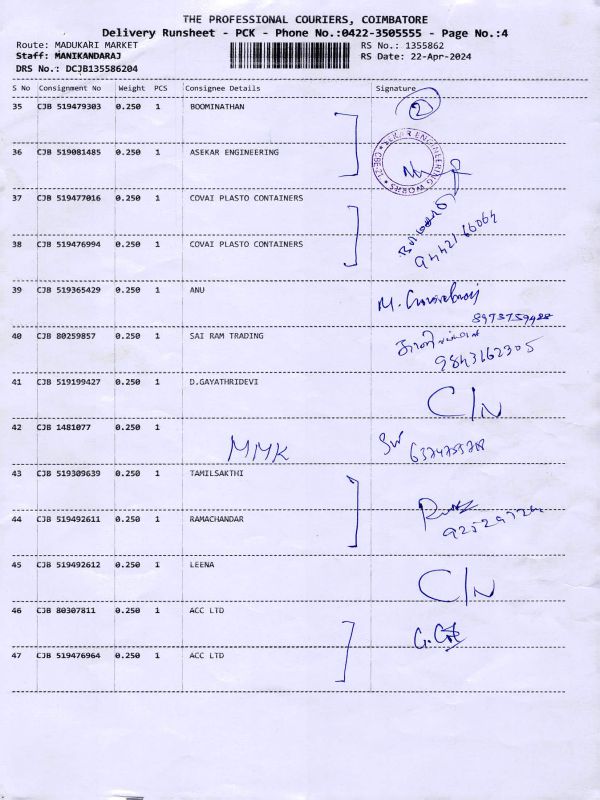 THE PROFESSIONAL COURIERS, COIMBATORE
Delivery Runsheet - PCK - Phone No.:0422-3505555 - Page No.:4
Route: MADUKARI MARKET
RS No.: 1355862
Staff: MANIKANDARAJ
RS Date: 22-Apr-2024
DRS No.: DCJB135586204
S No Consignment No Weight PCS Consignee Details Signature
35 CJB 519479303 0.250 1 BOOMINATHAN 2
36 CJB 519081485 0.250 1 ASEKAR ENGINEERING
SEKAR ENGINEERING WORKS
37 CJB 519477016 0.250 1 COVAI PLASTO CONTAINERS
38 CJB 519476994 0.250 1 COVAI PLASTO CONTAINERS
94421 66064
39 CJB 519365429 0.250 1 ANU
40 CJB 80259857 0.250 1 SAI RAM TRADING
9843162305
41 CJB 519199427 0.250 1 D.GAYATHRIDEVI
C/N
42 CJB 1481077 0.250 1
MMK
43 CJB 519309639 0.250 1 TAMILSAKTHI
44 CJB 519492611 0.250 1 RAMACHANDAR
45 CJB 519492612 0.250 1 LEENA
C/N
46 CJB 80307811 0.250 1 ACC LTD
47 CJB 519476964 0.250 1 ACC LTD